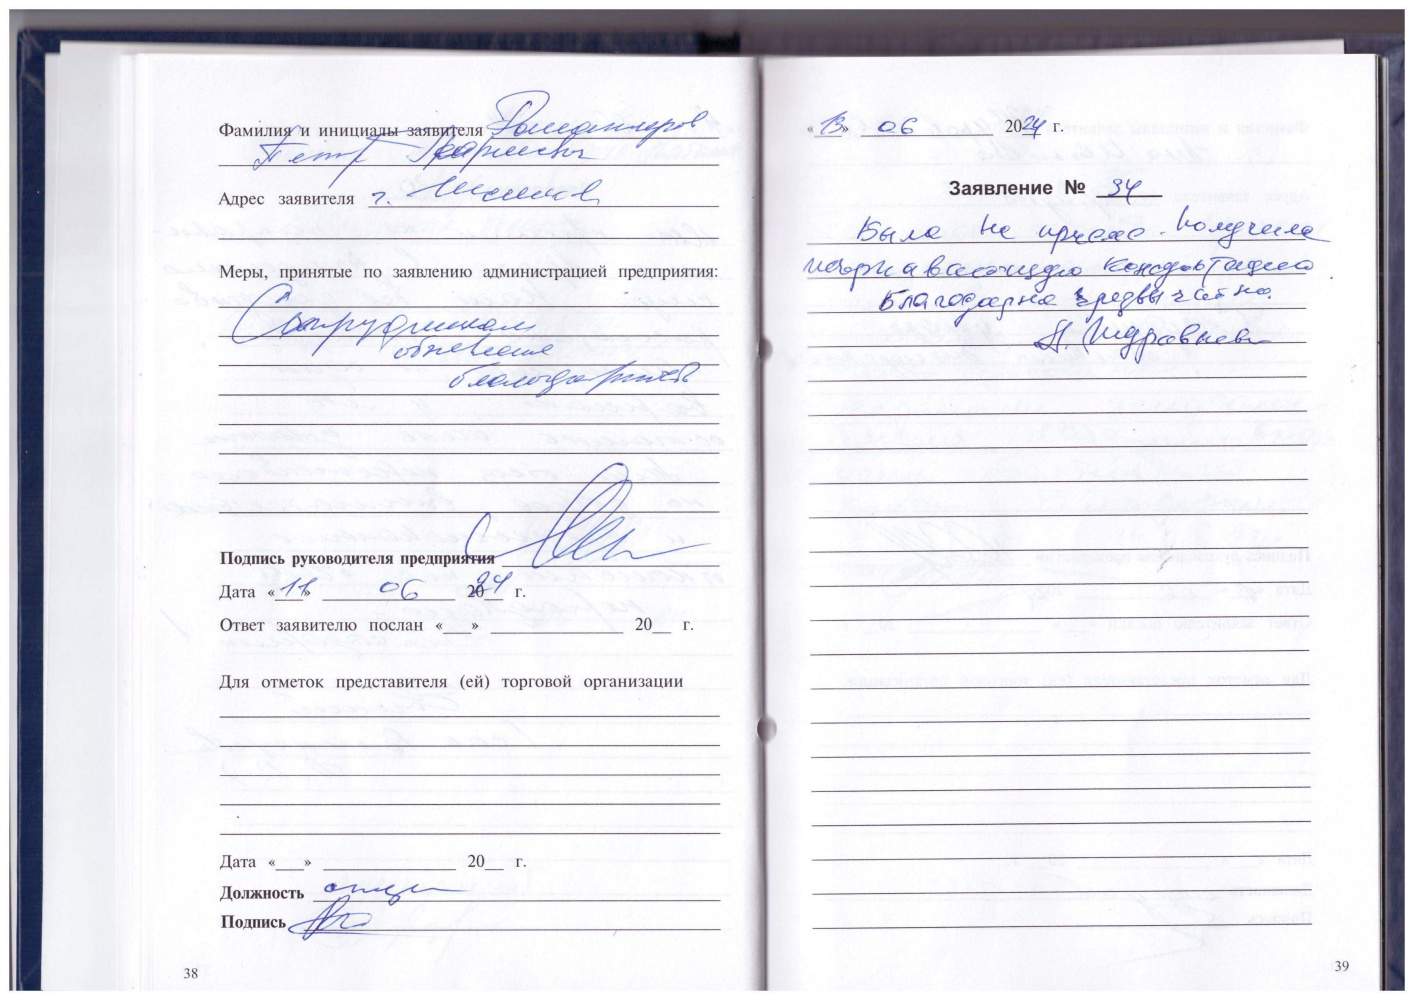 Фамилия и инициалы заявителя
Пётр
Адрес заявителя г.
Меры, принятые по заявлению администрацией предприятия:
Сотрудникам
объявлена
благодарность
Подпись руководителя предприятия
Дата «11» 06 2024 г.
Ответ заявителю послан «___» ____________ 20__ г.
Для отметок представителя (ей) торговой организации
Дата «___» ____________ 20__ г.
Должность
Подпись
38
«13» 06 2024 г.
Заявление № 34
Была на приеме. Получила
исчерпывающую консультацию
Благодарна чрезвычайно.
39